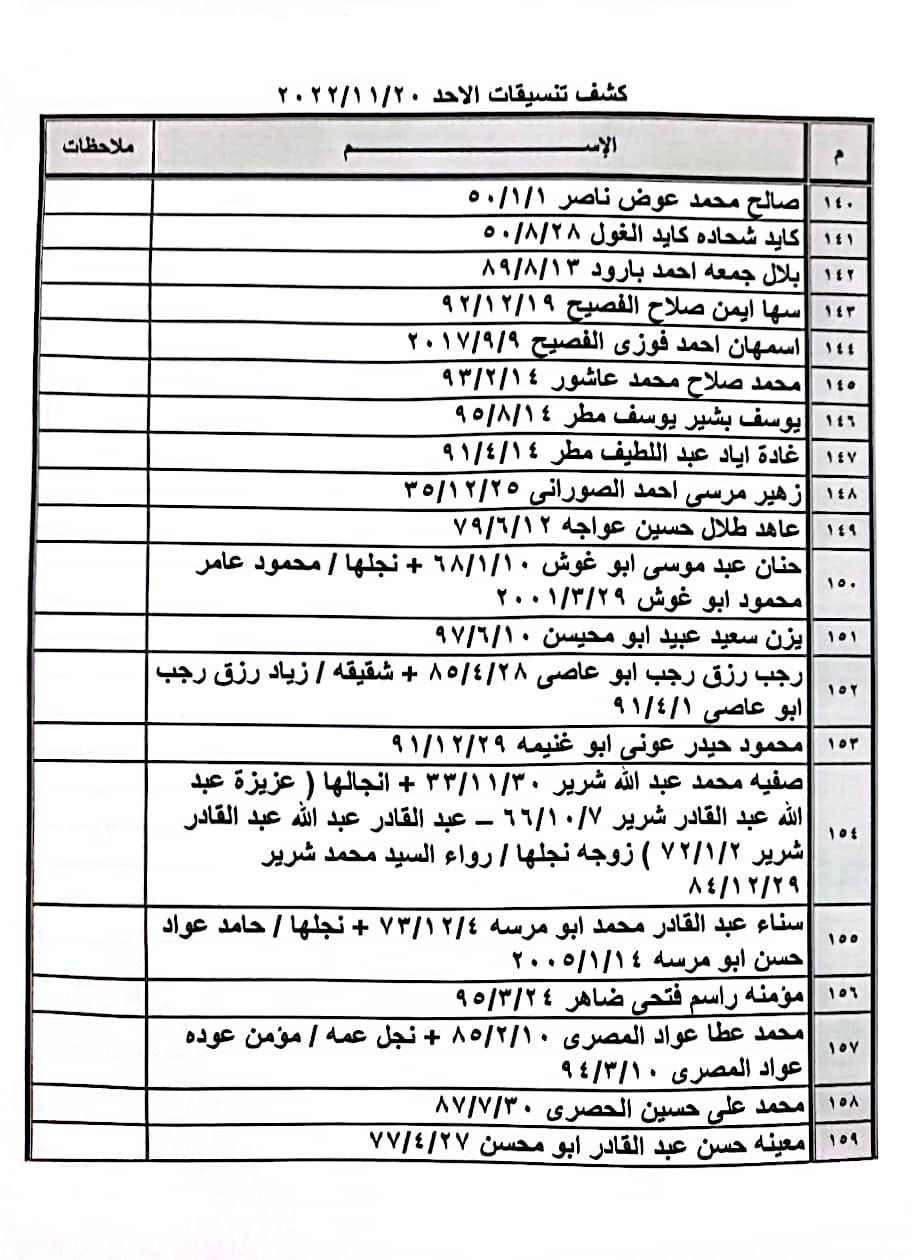 كشف تنسيقات الاحد ٢٠٢٢/١١/٢٠
م الإســـــــم ملاحظات
١٤٠ صالح محمد عوض ناصر ٥٠/١/١
١٤١ كايد شحاده كايد الغول ٥٠/٨/٢٨
١٤٢ بلال جمعه احمد بارود ٨٩/٨/١٣
١٤٣ سها ايمن صلاح الفصيح ٩٢/١٢/١٩
١٤٤ اسمهان احمد فوزى الفصيح ٢٠١٧/٩/٩
١٤٥ محمد صلاح محمد عاشور ٩٣/٢/١٤
١٤٦ يوسف بشير يوسف مطر ٩٥/٨/١٤
١٤٧ غادة اياد عبد اللطيف مطر ٩١/٤/١٤
١٤٨ زهير مرسى احمد الصورانى ٣٥/١٢/٢٥
١٤٩ عاهد طلال حسين عواجه ٧٩/٦/١٢
١٥٠ حنان عبد موسى ابو غوش ٦٨/١/١٠ + نجلها / محمود عامر
محمود ابو غوش ٢٠٠١/٣/٢٩
١٥١ يزن سعيد عبيد ابو محيسن ٩٧/٦/١٠
١٥٢ رجب رزق رجب ابو عاصى ٨٥/٤/٢٨ + شقيقه / زياد رزق رجب
ابو عاصى ٩١/٤/١
١٥٣ محمود حيدر عونى ابو غنيمه ٩١/١٢/٢٩
١٥٤ صفيه محمد عبد الله شرير ٣٣/١١/٣٠ + انجالها ( عزيزة عبد
الله عبد القادر شرير ٦٦/١٠/٧ – عبد القادر عبد الله عبد القادر
شرير ٧٢/١/٢ ) زوجه نجلها / رواء السيد محمد شرير
٨٤/١٢/٢٩
١٥٥ سناء عبد القادر محمد ابو مرسه ٧٣/١٢/٤ + نجلها / حامد عواد
حسن ابو مرسه ٢٠٠٥/١/١٤
١٥٦ مؤمنه راسم فتحى ضاهر ٩٥/٣/٢٤
١٥٧ محمد عطا عواد المصرى ٨٥/٢/١٠ + نجل عمه / مؤمن عوده
عواد المصرى ٩٤/٣/١٠
١٥٨ محمد على حسين الحصرى ٨٧/٧/٣٠
١٥٩ معينه حسن عبد القادر ابو محسن ٧٧/٤/٢٧